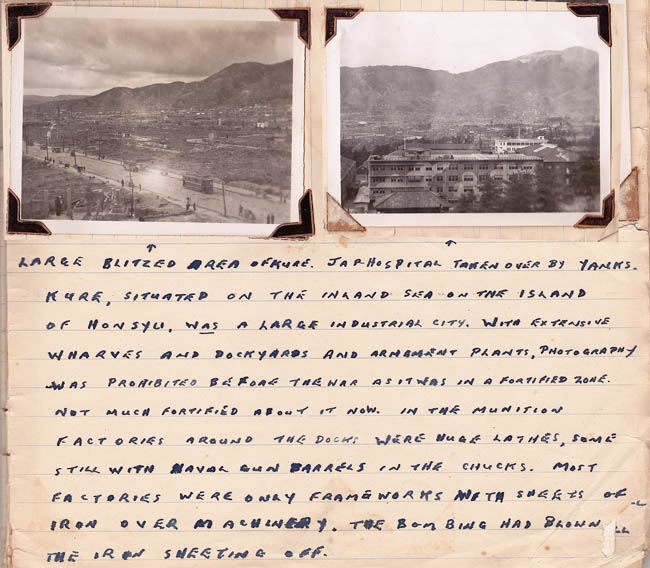 LARGE BLITZED AREA OF KURE. JAP HOSPITAL TAKEN OVER BY YANKS.
KURE, SITUATED ON THE INLAND SEA ON THE ISLAND
OF HONSYU, WAS A LARGE INDUSTRIAL CITY. WITH EXTENSIVE
WHARVES AND DOCKYARDS AND ARMAMENT PLANTS, PHOTOGRAPHY
WAS PROHIBITED BEFORE THE WAR AS IT WAS IN A FORTIFIED ZONE.
NOT MUCH FORTIFIED ABOUT IT NOW. IN THE MUNITION
FACTORIES AROUND THE DOCKS WERE HUGE LATHES, SOME
STILL WITH NAVAL GUN BARRELS IN THE CHUCKS. MOST
FACTORIES WERE ONLY FRAMEWORKS WITH SHEETS OF
IRON OVER MACHINERY. THE BOMBING HAD BLOWN
THE IRON SHEETING OFF.